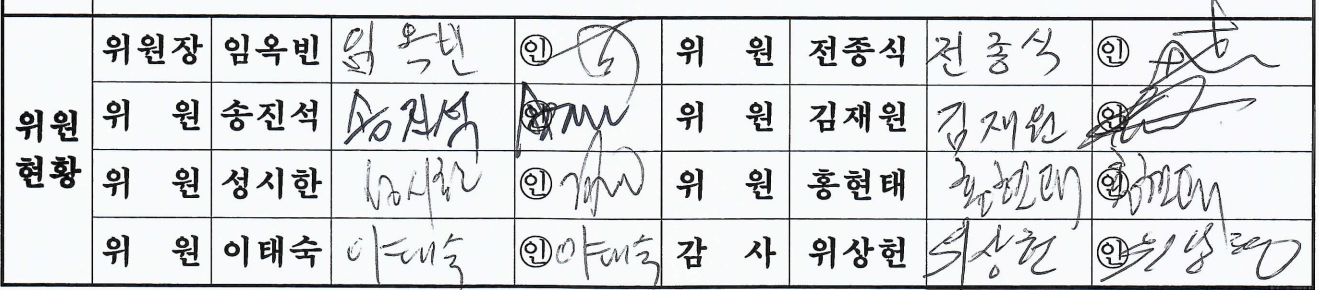 위원현황
위원장 임옥빈 임옥빈 ㊞ 위 원 전종식 전종식 ㊞
위 원 송진석 송진석 ㊞ 위 원 김재원 김재원 ㊞
위 원 성시한 성시한 ㊞ 위 원 홍현태 홍현태 ㊞ 홍현태
위 원 이태숙 이태숙 ㊞ 이태숙 감 사 위상헌 위상헌 ㊞ 위상헌